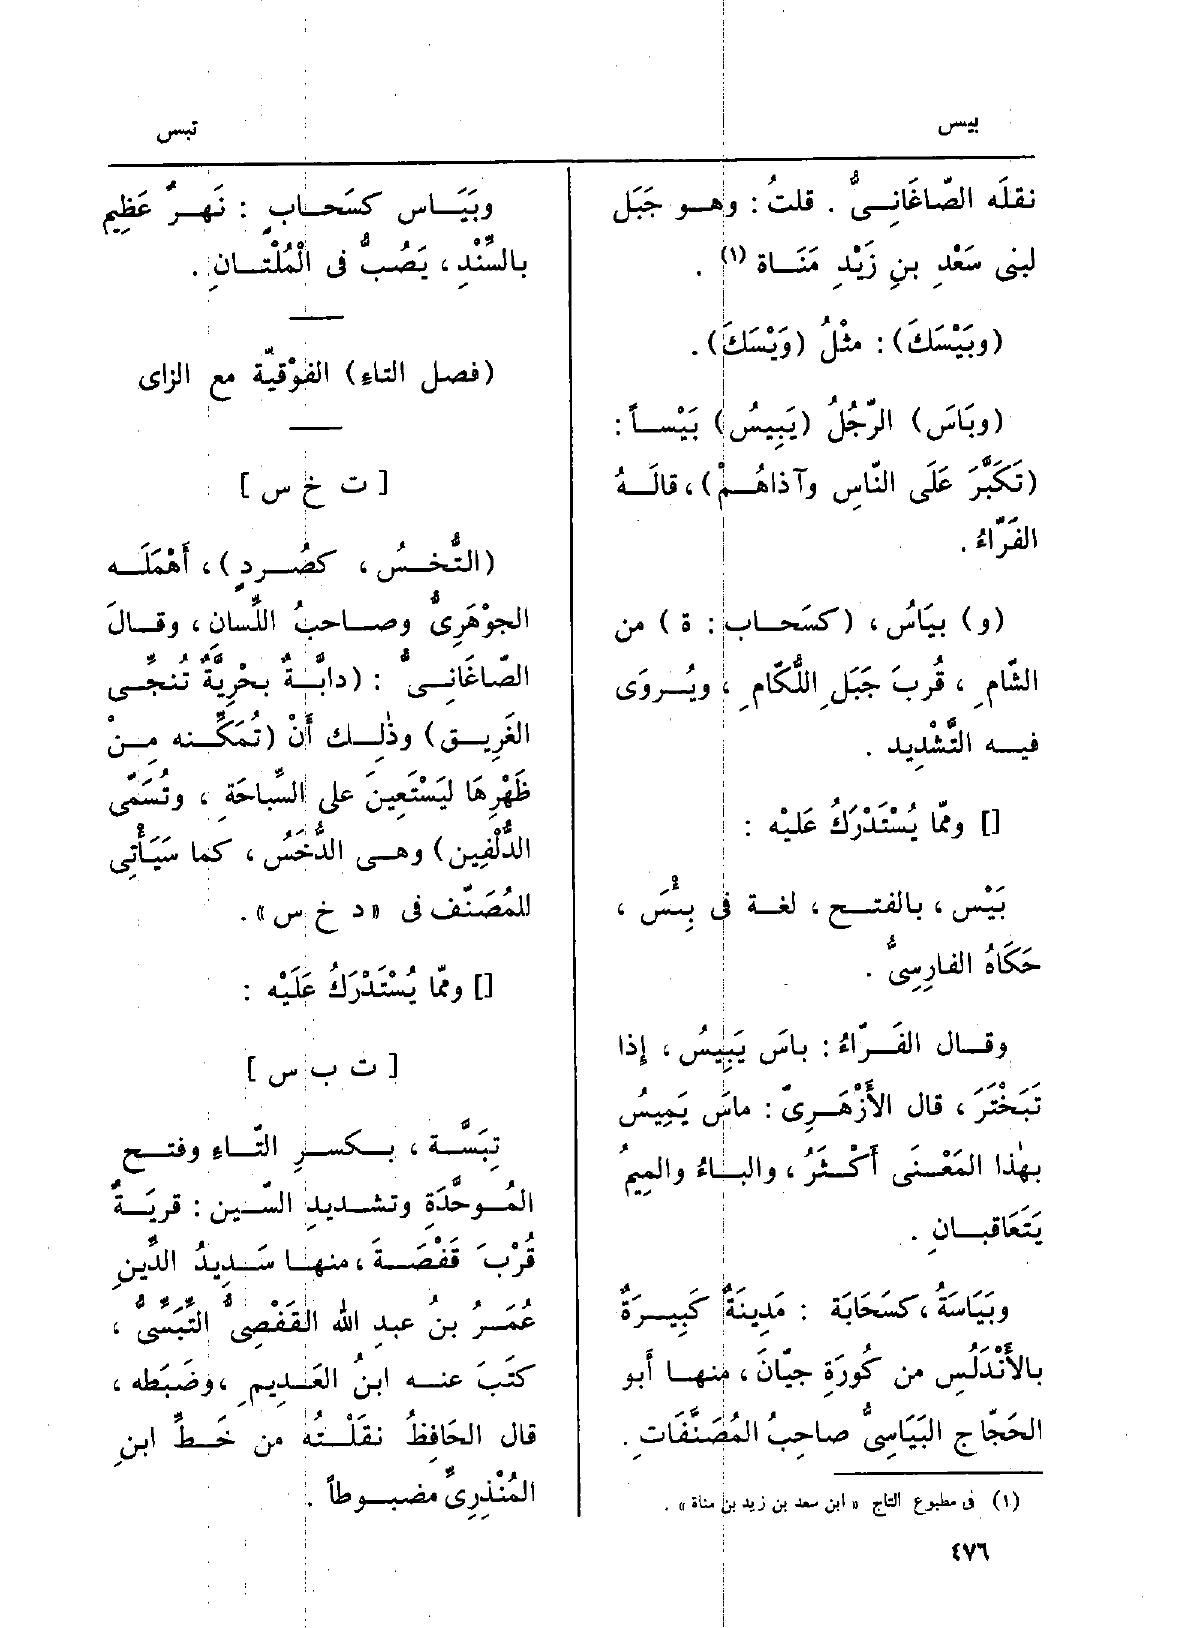 بيس
تبس
نقلَه الصّاغَانِىُّ . قلتُ : وهــو جَبَل
لبنى سَعْدِ بنِ زَيْدِ مَنَــاة (١) .
(وبَيْسَكَ) : مثْلُ (وَيْسَكَ) .
(وبَاسَ) الرّجُلُ (يَبِيسُ) بَيْســاً :
(تَكَبَّرَ عَلَى النّاسِ وآذاهُــمْ) ، قالَــهُ
الفَرّاءُ .
(و) بيَاسُ ، (كسَحــاب : ة ) من
الشّامِ ، قُربَ جَبَلِ اللُّكَّامِ ، ويُــروَى
فيــه التَّشْدِيد .
[] وممّا يُسْتَدْرَكُ عَليْه :
بَيْس ، بالفتــح ، لغــة فى بِئْسَ ،
حَكَاهُ الفارِسِىُّ .
وقــال الفَــرّاءُ : باسَ يَبِيسُ ، إذا
تَبَخْتَرَ ، قال الأَزْهَــرِىّ : ماسَ يَمِيسُ
بهٰذا المَعْــنَى أَكْــثَرُ ، والبــاءُ والمِيمُ
يَتَعَاقبــانِ .
وبَيَاسَةُ ، كسَحَابَة : مَدِينَةٌ كَبِيــرَةٌ
بالأَنْدَلُسِ من كُورَةِ جيّانَ ، منهــا أبو
الحَجّاج البَيَاسِىُّ صاحِبُ المُصَنَّفَاتِ .
(١) فى مطبوع التاج « ابن سعد بن زيد بن مناة » .
وبَيَــاس كسَحــابٍ : نَهــرٌ عَظِيم
بالسِّنْدِ ، يَصُبُّ فى الْمُلْتــانِ .
(فصل التاء) الفوْقيّة مع الزاى
[ ت خ س ]
(التُّخَــسُ ، كصُــردٍ ) ، أَهْمَلَــه
الجوْهَرِىُّ وصــاحبُ اللِّسانِ ، وقــالَ
الصّاغَانِــىُّ : (دابَّــةٌ بحْرِيَّةٌ تُنجِّــى
الغَرِيــق) وذٰلِــك أَنْ (تُمَكِّــنه مِــنْ
ظَهْرِهَا لِيَسْتَعِينَ على السِّباحَةِ ، وتُسَمَّى
الدُّلْفِين) وهــى الدُّخَسُ ، كما سَيَأْتِى
للمُصَنّف فى «د خ س» .
[] وممّا يُسْتَدْرَكُ عَلَيْه :
[ ت ب س ]
تِبَسَّة ، بــكســرِ التّــاءِ وفتــح
المُــوحَّدَةِ وتشــديدِ السّــين : قريَــةٌ
قُرْبَ قَفْصَــةَ ، منهــا سَدِيدُ الدِّينِ
عُمَــرُ بنُ عبدِ الله القَفْصِىُّ التِّبَسِّىُّ ،
كتَبَ عنــه ابنُ العَــدِيمِ ، وضَبَطه ،
قال الحَافِظُ نقَلْــتُه من خَــطِّ ابنِ
المُنْذِرِىِّ مضبــوطاً .
٤٧٦